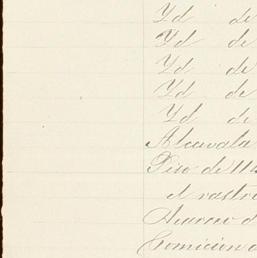 Yd de
Yd de
Yd de
Yd de
Yd de
Alcavala
Piso de
el rastro
Comicion